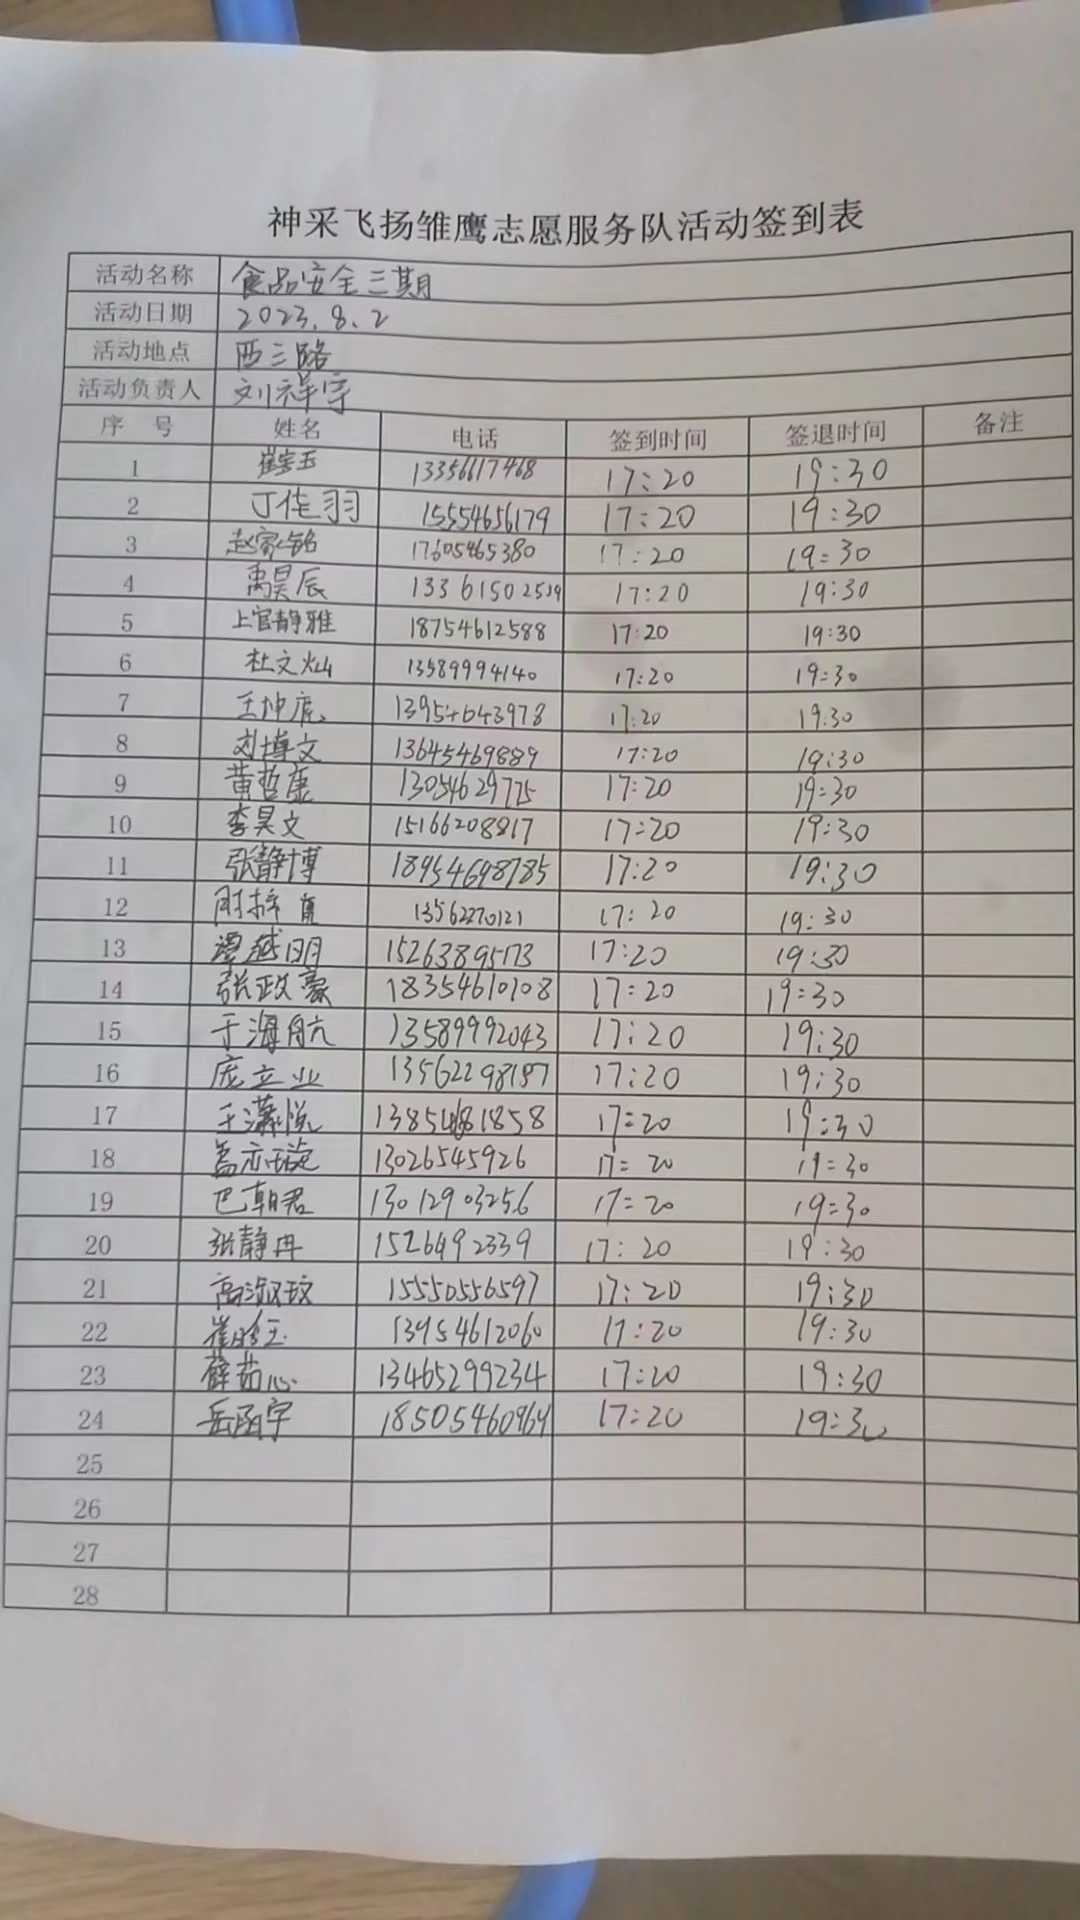 神采飞扬雏鹰志愿服务队活动签到表
活动名称 食品安全三期
活动日期 2023.8.2
活动地点 西三路
活动负责人 刘祥宇
序 号 姓名 电话 签到时间 签退时间 备注
1 崔宝玉 13356617468 17:20 19:30
2 丁佳羽 15554656179 17:20 19:30
3 赵家铭 17605465380 17:20 19:30
4 禹昊辰 13361502519 17:20 19:30
5 上官静雅 18754612588 17:20 19:30
6 杜文灿 13589994140 17:20 19:30
7 王坤 17:20 19:30
8 刘博文 13645469889 17:20 19:30
9 黄哲康 13054629775 17:20 19:30
10 李昊文 15166208817 17:20 19:30
11 张静博 18954698785 17:20 19:30
12 13562270121 17:20 19:30
13 谭越明 15263895173 17:20 19:30
14 张政豪 18354610108 17:20 19:30
15 于海航 13589992043 17:20 19:30
16 庞立业 13562298187 17:20 19:30
17 于潇悦 17:20 19:30
18 孟亦璇 13026545926 17:20 19:30
19 巴朝君 13012903256 17:20 19:30
20 张静冉 1526492339 17:20 19:30
21 高淑玟 15550556597 17:20 19:30
22 崔 玉 13954612060 17:20 19:30
23 薛茹心 13465299234 17:20 19:30
24 岳函宇 18505460964 17:20 19:30
25
26
27
28